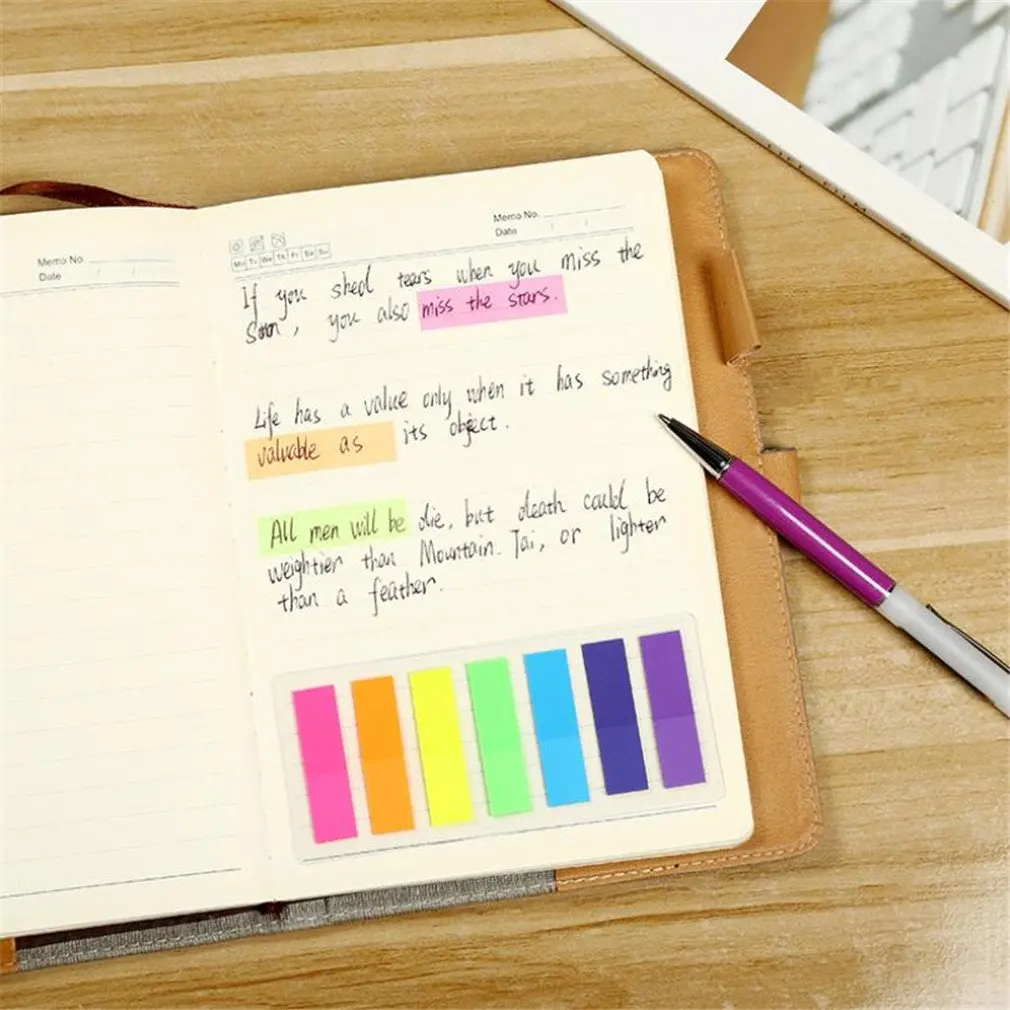 Memo No.
Date
Memo No.
Date
Mo Tu We Th Fr Sa Su
If you shed tears when you miss the
Sun, you also miss the stars.
Life has a value only when it has something
valuable as its object.
All men will be die, but death could be
weightier than Mountain. Tai, or lighter
than a feather.